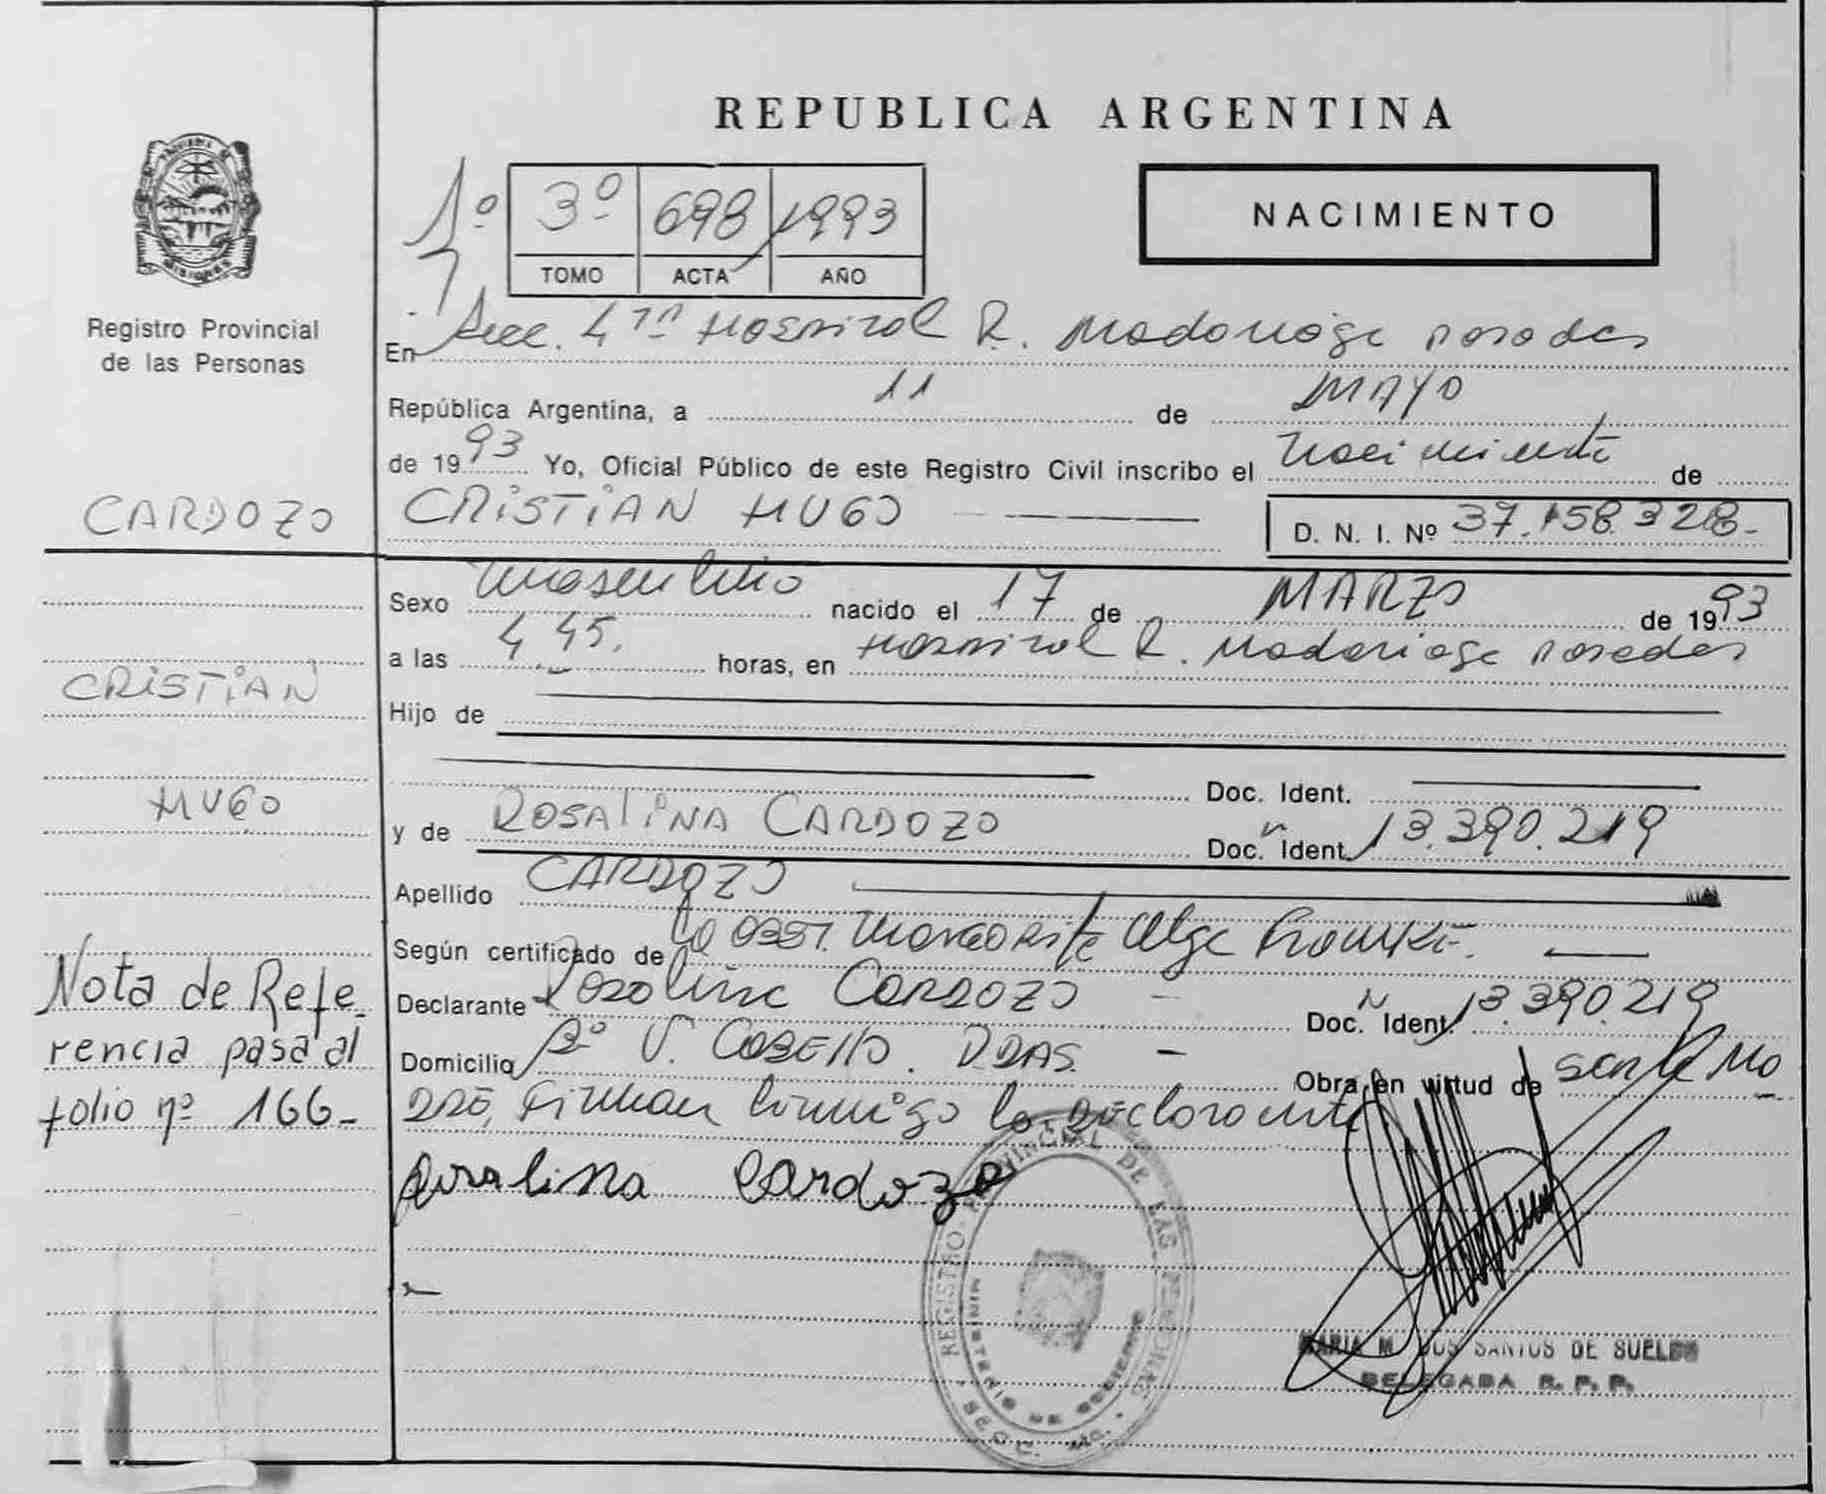 REPUBLICA ARGENTINA
NACIMIENTO
1º
3º 698 1993
TOMO ACTA AÑO
MISIONES
Registro Provincial
de las Personas
En Secc. 4ta Hospital R. Madariaga Posadas
República Argentina, a 11 de MAYO
de 1993 Yo, Oficial Público de este Registro Civil inscribo el nacimiento de
CARDOZO
CRISTIAN HUGO
D. N. I. Nº 37.158.328.-
Sexo masculino nacido el 17 de MARZO de 1993
a las 4 45. horas, en Hospital R. Madariaga Posadas
CRISTIAN
Hijo de
Doc. Ident.
HUGO
y de ROSALINA CARDOZO Doc. Ident. 13.390.219
Apellido CARDOZO
Según certificado de la OBST. Margarita Olga
Declarante Rosalina CARDOZO - Doc. Ident. 13.390.219
Domicilio Bº V. CABELLO. PDAS. - Obra en virtud de
Nota de Refe-
rencia pasa al
folio nº 166-
Firman conmigo la declarante
Rosalina Cardozo
REGISTRO PROVINCIAL DE LAS PERSONAS
MINISTERIO DE GOBIERNO
MARIA M. DOS SANTOS DE SUELDO
DELEGADA R. P. P.